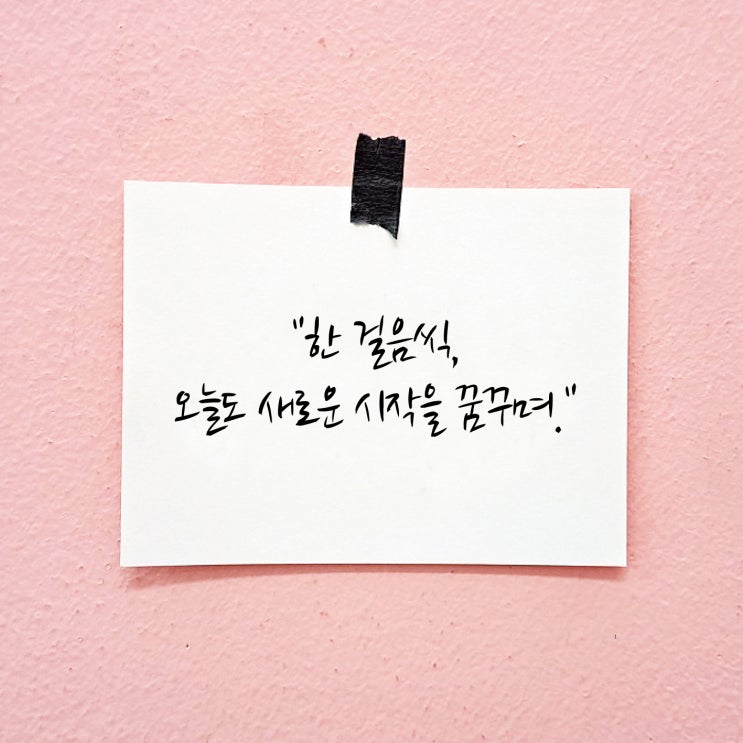 "한 걸음씩,
오늘도 새로운 시작을 꿈꾸며."